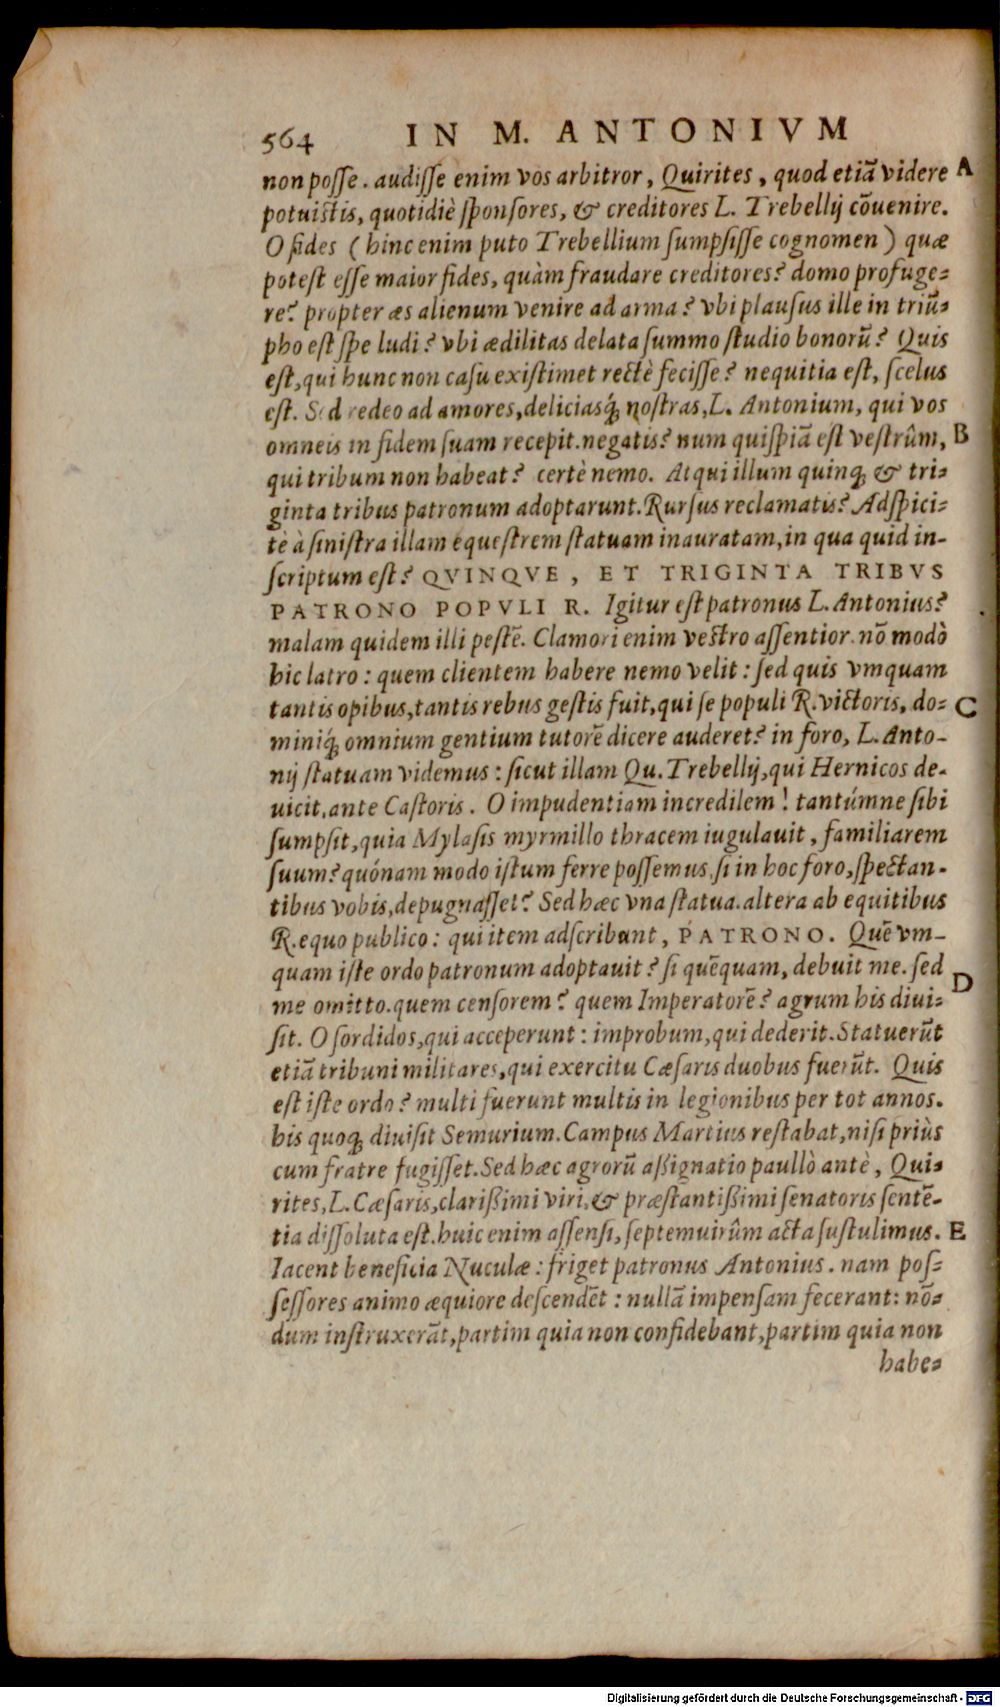 564 IN M. ANTONIVM
non posse. audisse enim vos arbitror, Quirites, quod etiā videre A
potuistis, quotidiè sponsores, & creditores L. Trebellij cōuenire.
O fides (hinc enim puto Trebellium sumpsisse cognomen) quæ
potest esse maior fides, quàm fraudare creditores? domo profuge-
re? propter æs alienum venire ad arma? vbi plausus ille in triū-
pho est spe ludi? vbi ædilitas delata summo studio bonorū? Quis
est, qui hunc non casu existimet rectè fecisse? nequitia est, scelus
est. Sed redeo ad amores, deliciasq́; nostras, L. Antonium, qui vos
omneis in fidem suam recepit. negatis? num quispiā est vestrûm, B
qui tribum non habeat? certè nemo. Atqui illum quinq; & tri-
ginta tribus patronum adoptarunt. Rursus reclamatis? Adspici-
te à sinistra illam equestrem statuam inauratam, in qua quid in-
scriptum est? QVINQVE, ET TRIGINTA TRIBVS
PATRONO POPVLI R. Igitur est patronus L. Antonius?
malam quidem illi pestē. Clamori enim vestro assentior. nō modò
hic latro: quem clientem habere nemo velit: sed quis vmquam
tantis opibus, tantis rebus gestis fuit, qui se populi R. victoris, do- C
miniq́; omnium gentium tutorē dicere auderet? in foro, L. Anto-
nij statuam videmus: sicut illam Qu. Trebellij, qui Hernicos de-
uicit, ante Castoris. O impudentiam incredilem! tantúmne sibi
sumpsit, quia Mylasis myrmillo thracem iugulauit, familiarem
suum? quónam modo istum ferre possemus, si in hoc foro, spectan-
tibus vobis, depugnasset? Sed hæc vna statua. altera ab equitibus
R. equo publico: qui item adscribunt, PATRONO. Quē vm-
quam iste ordo patronum adoptauit? si quēquam, debuit me. sed
me omitto. quem censorem? quem Imperatorē? agrum his diui- D
sit. O sordidos, qui acceperunt: improbum, qui dederit. Statuerūt
etiā tribuni militares, qui exercitu Cæsaris duobus fuerūt. Quis
est iste ordo? multi fuerunt multis in legionibus per tot annos.
his quoq; diuisit Semurium. Campus Martius restabat, nisi priùs
cum fratre fugisset. Sed hæc agrorū aßignatio paullò antè, Qui-
rites, L. Cæsaris, clarißimi viri, & præstantißimi senatoris sentē-
tia dissoluta est. huic enim assensi, septemuirûm acta sustulimus. E
Iacent beneficia Nuculæ: friget patronus Antonius. nam pos-
sessores animo æquiore descendēt: nullā impensam fecerant: nō-
dum instruxerāt, partim quia non confidebant, partim quia non
habe-
Digitalisierung gefördert durch die Deutsche Forschungsgemeinschaft - DFG